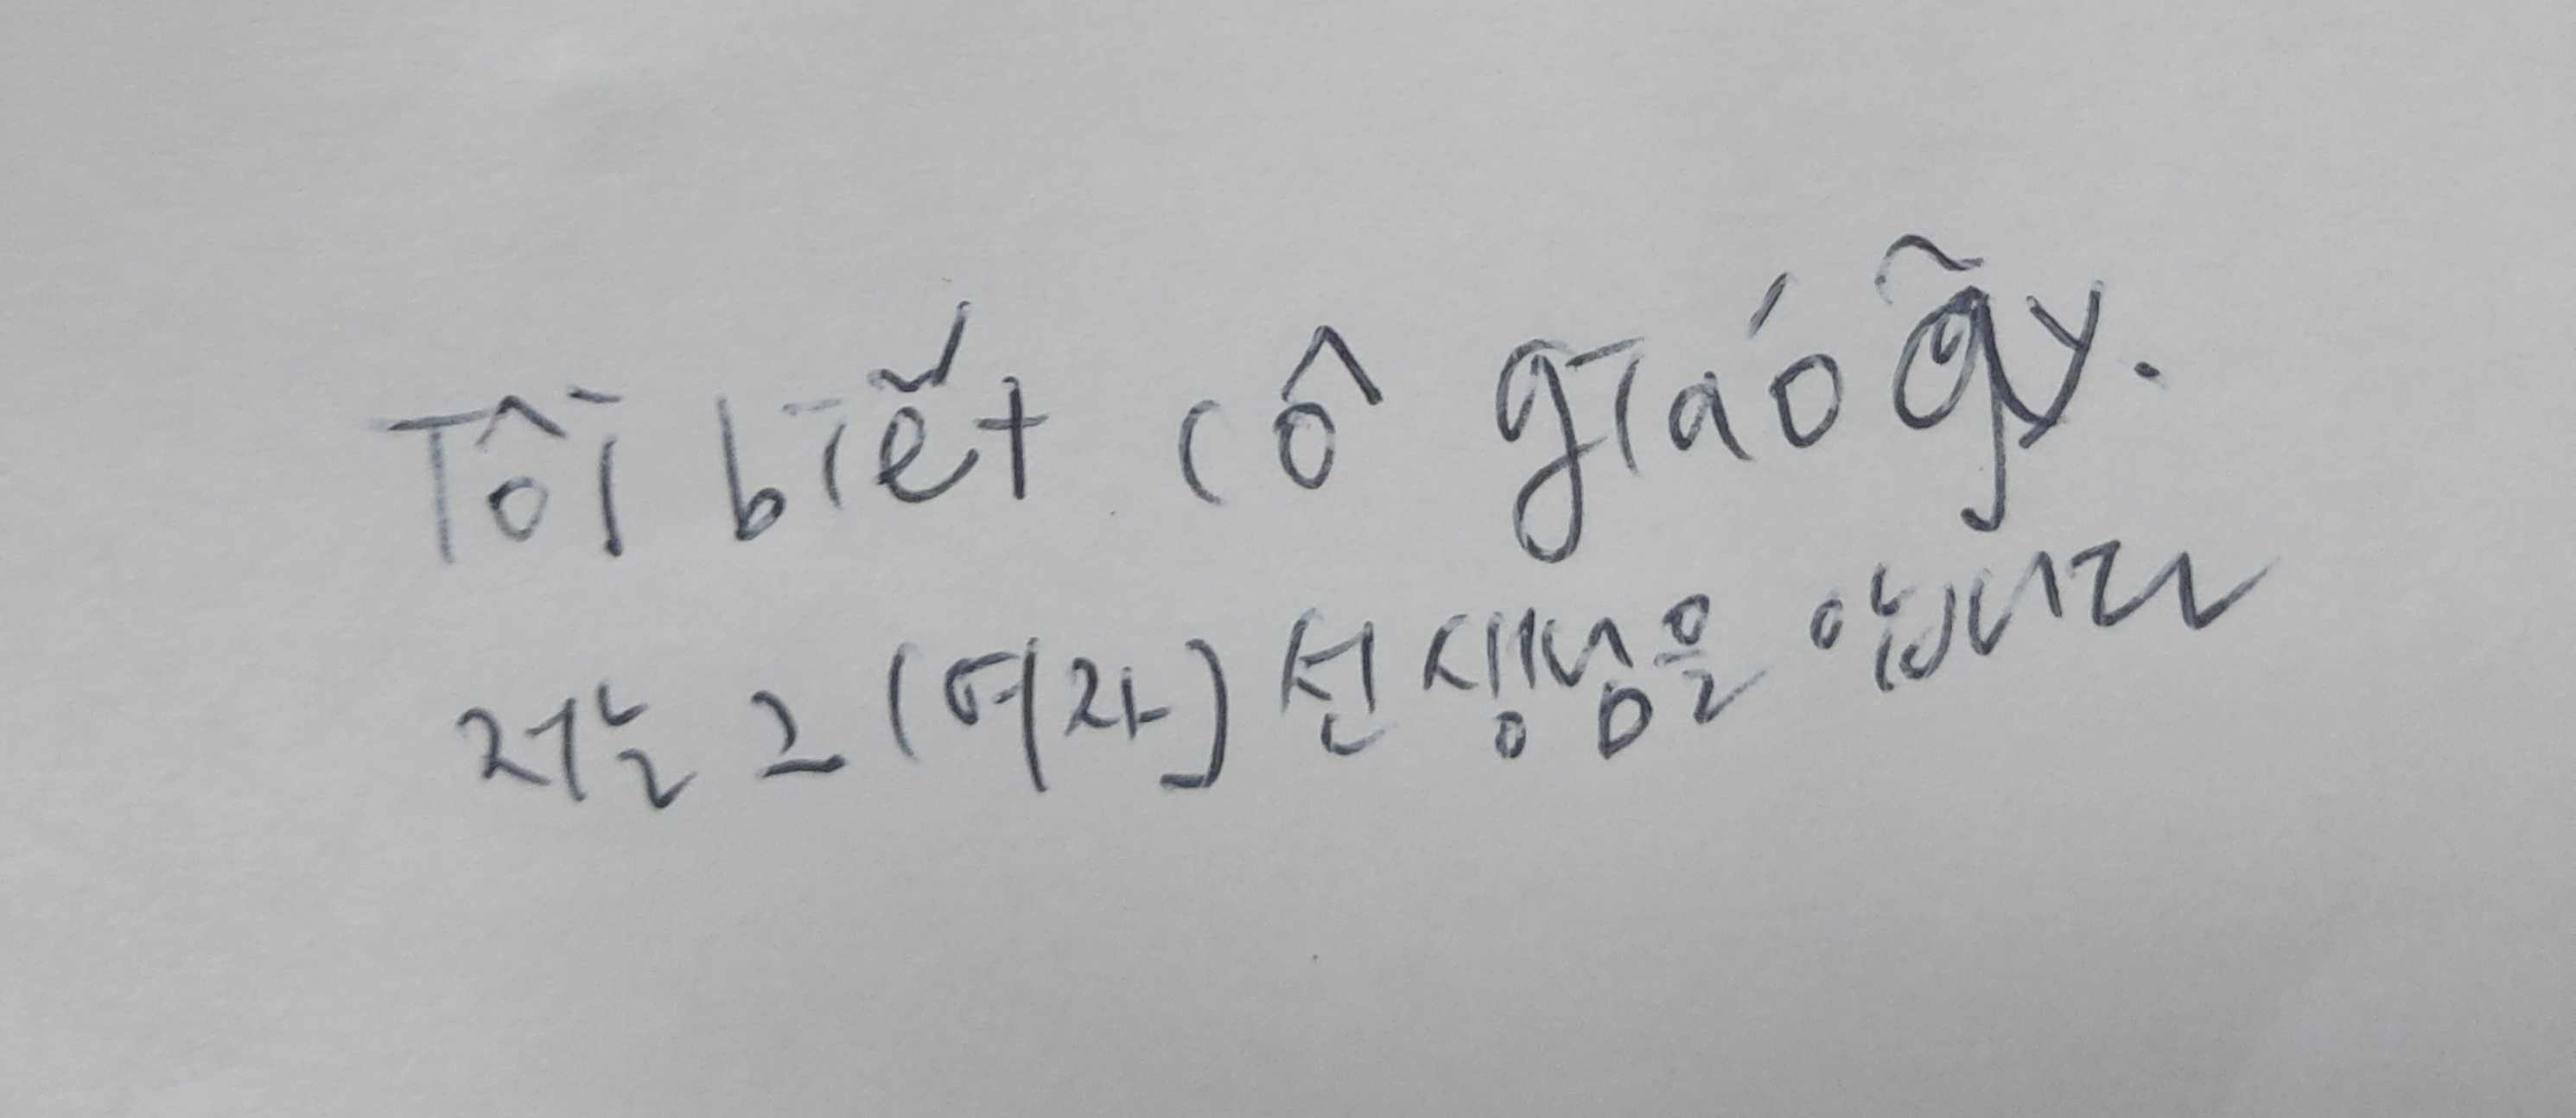 Tôi biết cô giáo ấy.
저는 그 (여자) 선생님을 압니다